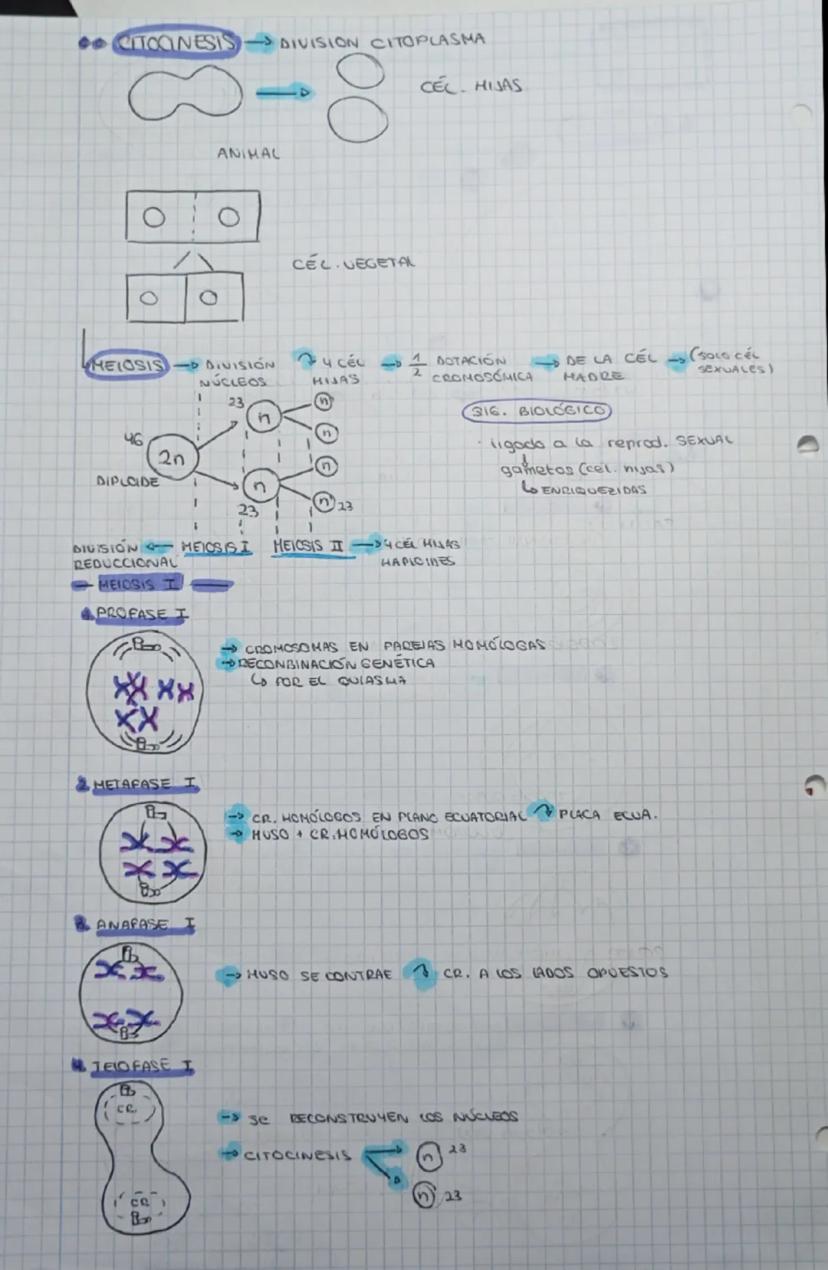 CITOCINESIS → DIVISION CITOPLASMA
CÉL. HIJAS
ANIMAL
CÉL. VEGETAL
MEIOSIS → DIVISIÓN NÚCLEOS ↷ 4 CÉL HIJAS → 1/2 DOTACIÓN CROMOSÓMICA → DE LA CÉL MADRE → (SOLO CÉL SEXUALES)
46 2n DIPLOIDE
23 n
n
n
n 23
n
n 23
SIG. BIOLÓGICO
· ligado a la reprod. SEXUAL
gametos (cél. hijas)
↳ ENRIQUEZIDAS
DIVISIÓN REDUCCIONAL ← MEIOSIS I
MEIOSIS II → 4 CÉL HIJAS HAPLOIDES
MEIOSIS I
1. PROFASE I
→ CROMOSOMAS EN PAREJAS HOMÓLOGAS
→ RECONBINACIÓN GENÉTICA
↳ POR EL QUIASMA
2. METAFASE I
→ CR. HOMÓLOGOS EN PLANO ECUATORIAL ↷ PLACA ECUA.
→ HUSO + CR. HOMÓLOGOS
3. ANAFASE I
→ HUSO SE CONTRAE ↷ CR. A LOS LADOS OPUESTOS
4. TELOFASE I
CR
→ SE RECONSTRUYEN LOS NÚCLEOS
→ CITOCINESIS
n 23
n 23
CR